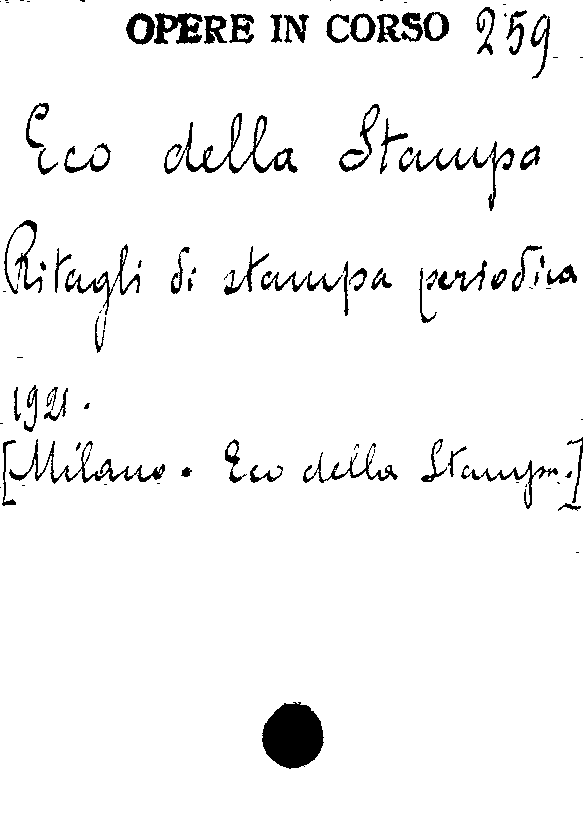 OPERE IN CORSO 259
Eco della Stampa
Ritagli di stampa periodica
1921.
[Milano. Eco della Stampa.]